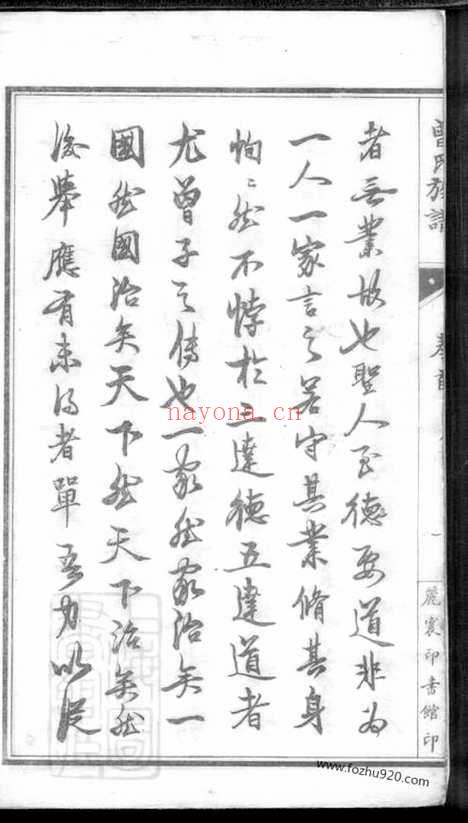 曾氏族譜
卷首
一
麗寰印書館印
者無業故也聖人至德要道非為
一人一家言之若守其業脩其身
恂〻然不悖於三達德五達道者
尤曾子之傳也一家然家治矣一
國然國治矣天下然天下治矣然
後舉應有未得者單吾力以從
nayona.cn
www.fozhu920.com